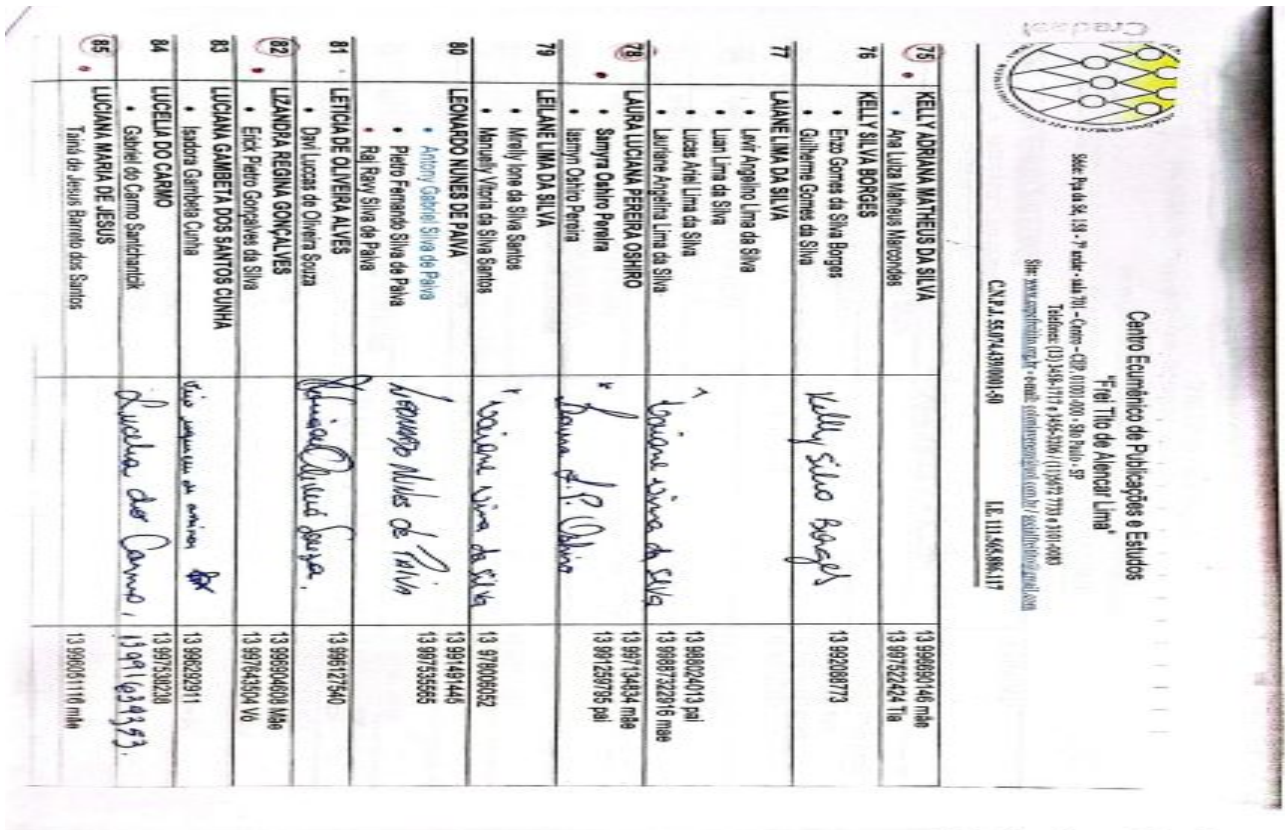 Centro Ecumênico de Publicações e Estudos
"Frei Tito de Alencar Lima"
Séde: Pça da Sé, 158 - 7º andar - sala 701 – Centro – CEP. 01001-000 - São Paulo - SP
C.N.P.J. 55.074.439/0001-50 I.E. 111.565.886.117
75 KELLY ADRIANA MATHEUS DA SILVA
• Ana Luiza Matheus Marcondes
13 996890146 mãe
13 997522424 Tia
76 KELLY SILVA BORGES
• Enzo Gomes da Silva Borges
• Guilherme Gomes da Silva
Kelly Silva Borges
13 992088773
77 LAUANE LIMA DA SILVA
• Levir Angelino Lima da Silva
• Luan Lima da Silva
• Lucas Ariel Lima da Silva
• Lauriane Angelina Lima da Silva
Lima da Silva
13 988024013 pai
13 99887322916 mae
78 LAURA LUCIANA PEREIRA OSHIRO
• Samyra Oshiro Pereira
• Iasmyn Oshiro Pereira
13 997134834 mãe
13 991259795 pai
79 LEILANE LIMA DA SILVA
• Mirelly Ione da Silva Santos
• Manuelly Vitoria da Silva Santos
Lima da Silva
13 978006052
80 LEONARDO NUNES DE PAIVA
• Antony Gabriel Silva de Paiva
• Pietro Fernando Silva de Paiva
• Raj Ravy Silva de Paiva
Leonardo Nunes de Paiva
13 991491445
13 997535565
81 LETICIA DE OLIVEIRA ALVES
• Davi Luccas de Oliveira Souza
Souza.
13 996127540
82 LIZANDRA REGINA GONÇALVES
• Erick Pietro Gonçalves da Silva
13 996904608 Mãe
13 997643504 Vó
83 LUCIANA GAMBETA DOS SANTOS CUNHA
• Isadora Gambeta Cunha
13 996292911
84 LUCELIA DO CARMO
• Gabriel do Carmo Santchantcik
Lucelia do Carmo, 13 991639393.
13 997538238
85 LUCIANA MARIA DE JESUS
Tainá de Jesus Barreto dos Santos
13 996051116 mãe